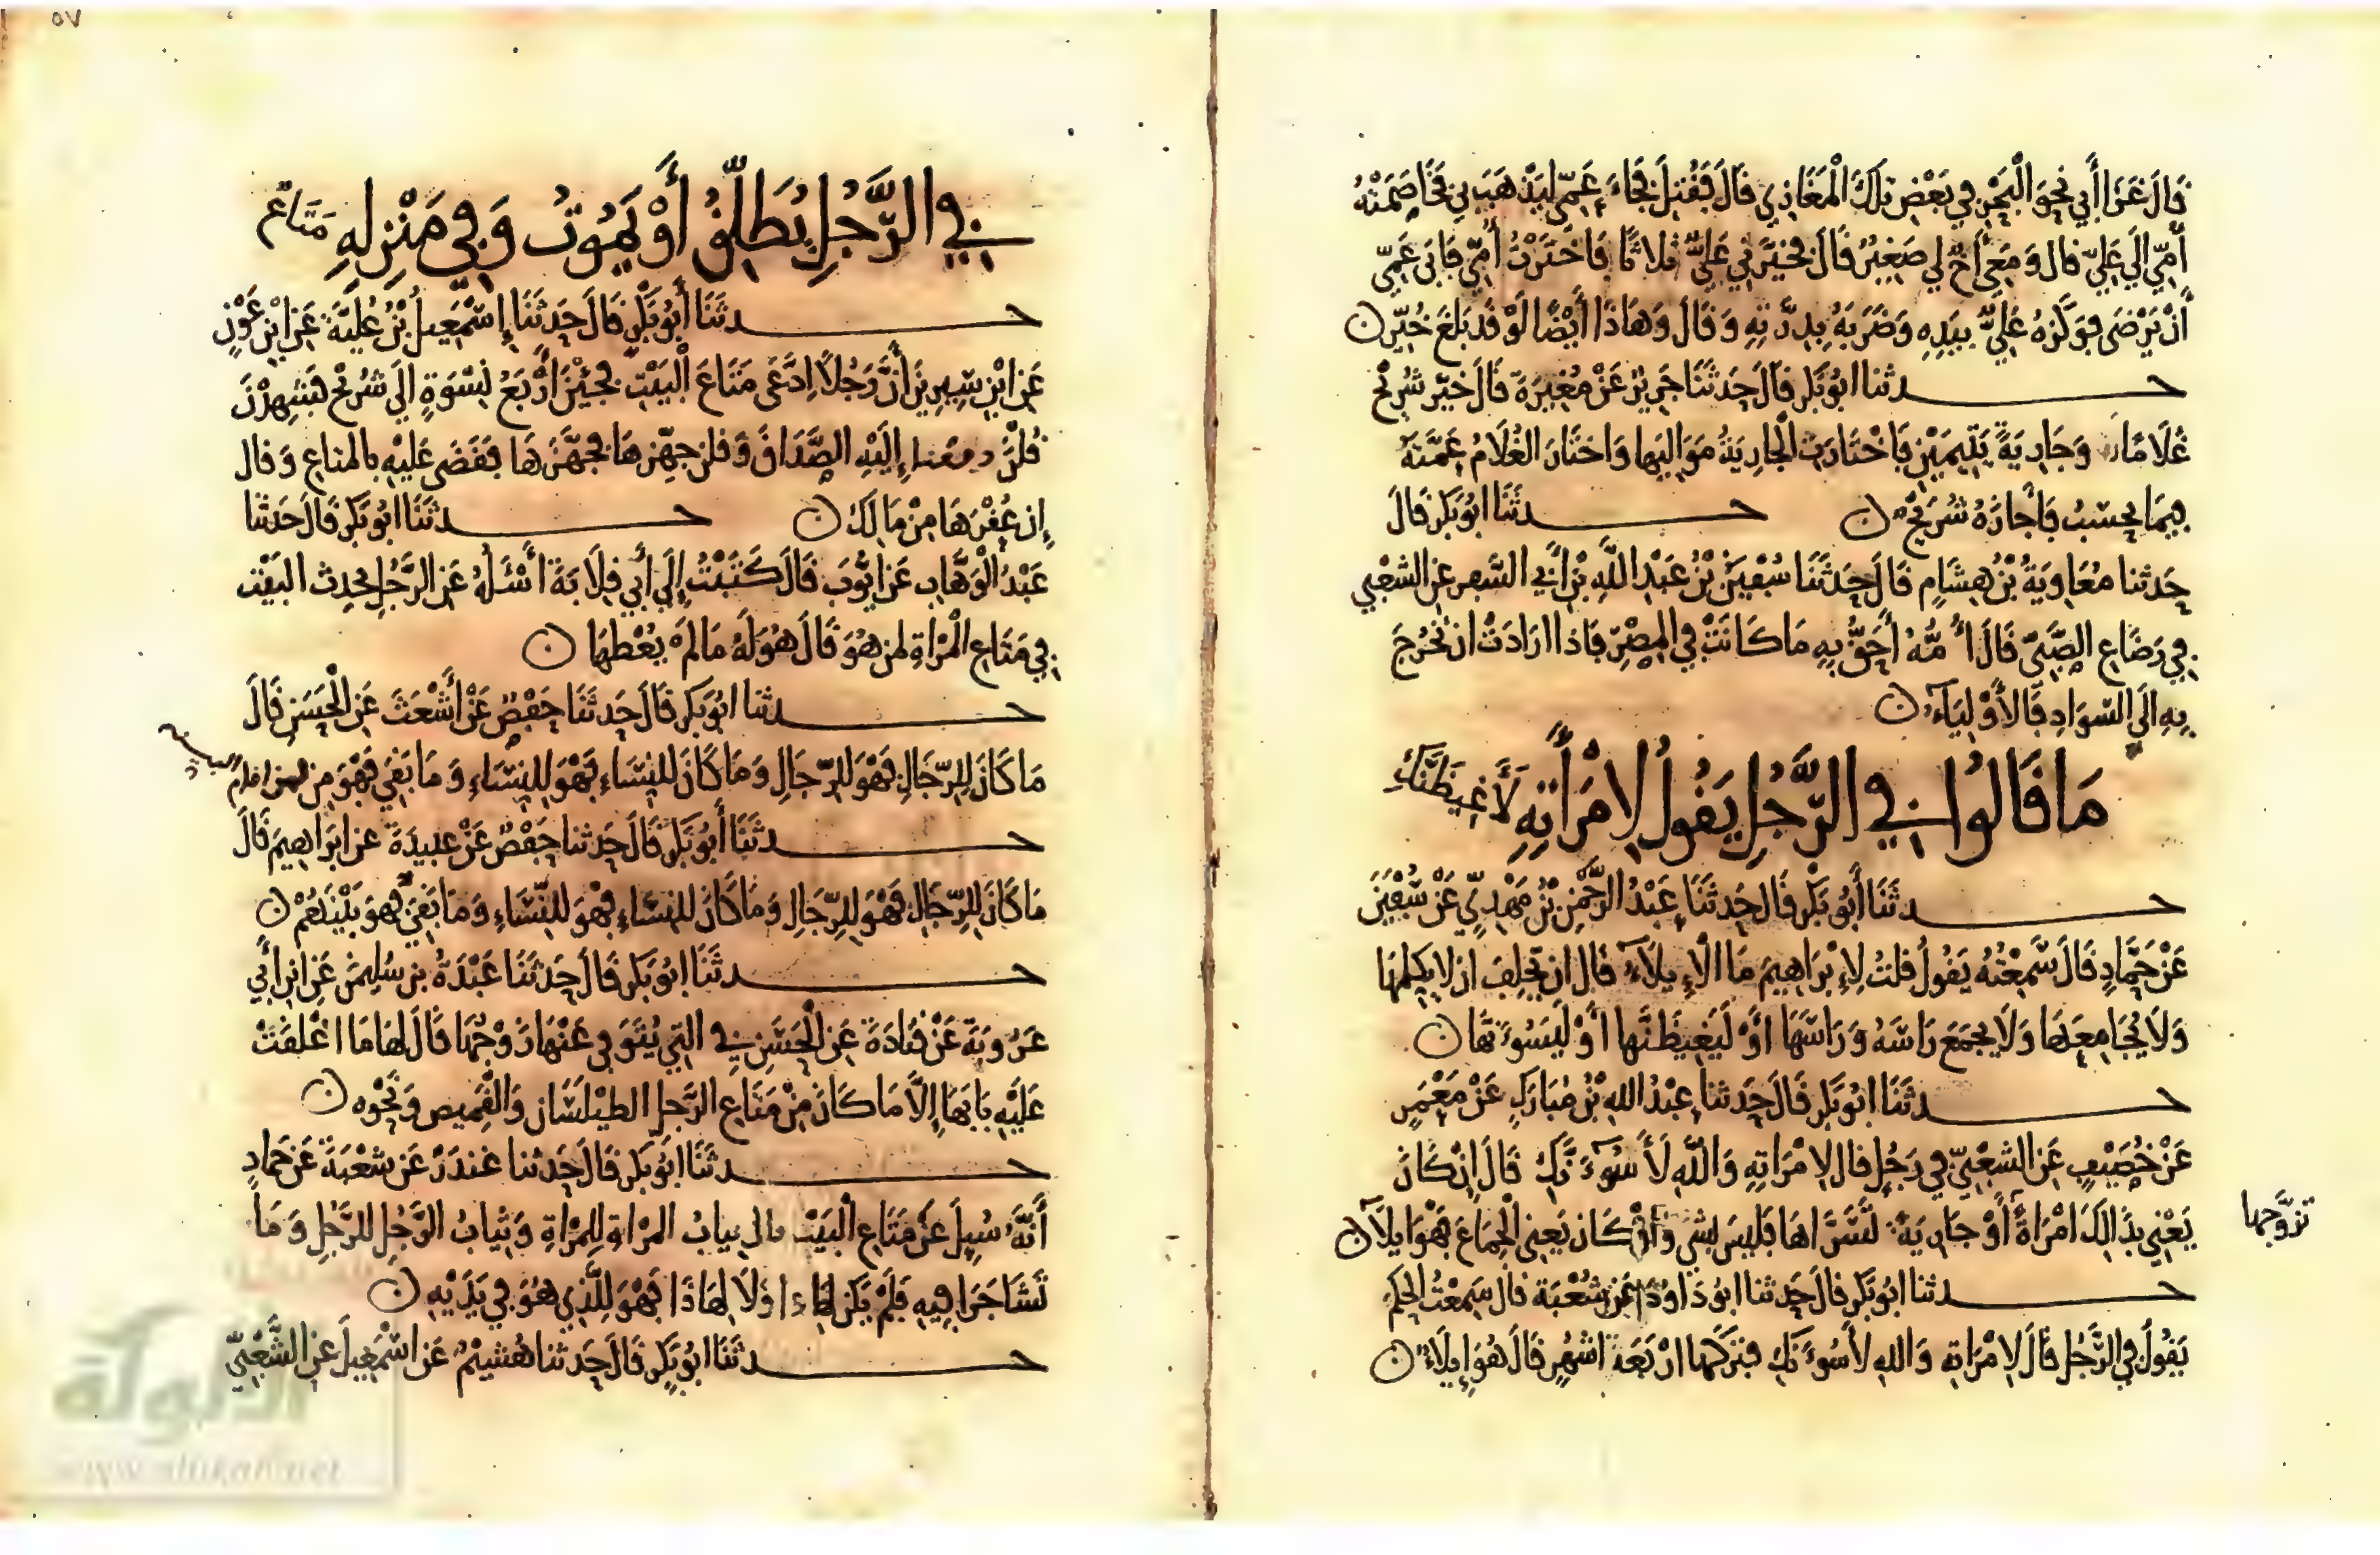 قَالَ غَزَا أَبِي نَحْوَ الْبَحْرِ فِي بَعْضِ تِلْكَ الْمَغَازِي قَالَ فَقُتِلَ فَجَاءَ عَمِّي لِيَذْهَبَ بِي فَخَاصَمَتْهُ
أُمِّي إِلَى عَلِيٍّ قال وَمَعِي أَخٌ لِي صَغِيرٌ قَالَ فَخَيَّرَنِي عَلِيٌّ ثَلَاثًا فَاخْتَرْتُ أُمِّي فَأَبَى عَمِّي
أَنْ يَرْضَى فَوَكَزَهُ عَلِيٌّ بِيَدِهِ وَضَرَبَهُ بِدِرَّتِهِ وَقَالَ وَهَاذَا أَيْضًا لَوْ قَدْ بَلَغَ خُيِّرَ ن
حــدثنا ابُو بَكر قَالَ حَدثَنَا جَرِيرٌ عَنْ مُغِيرَةَ قَالَ خَيَّرَ شُرَيْحٌ
غُلَامًا وَجَارِيَةً يَتِيمَيْنِ فَاخْتَارَت الْجَارِيَةُ مَوَالِيَها وَاختَارَ الغُلَامُ عَمَّتَهُ
فِيمَا يحسَبُ فَأَجَازَهُ شُرَيْحٌ ن حــدثَنَا ابُو بَكر قَالَ
حَدثنا مُعَاوِيَةُ بْنُ هِشَامٍ قَالَ حَدثَنَا سُفْيَنُ بْنُ عَبْدِ اللَّهِ بْنِ أَبِي السَّفر عَنِ الشعْبي
فِي رَضَاعِ الصَّبِيِّ قَالَ أُمُّهُ أَحَقُّ بِهِ مَا كَانَتْ فِي الْمِصْرِ فَاذَا ارَادَتْ انْ تَخْرُجَ
بِهِ الَى السَّوَادِ فَالأَوْلِيَاءُ ن
مَا قَالُوا فِي الرَّجُلِ يَقُولُ لِامْرَأَتِهِ لَأَغِيظَنَّكِ
حــدثَنَا أَبُو بَكْر قَالَ حَدثَنَا عَبْدُ الرَّحْمَنِ بْنُ مَهْدِيٍّ عَنْ سُفْيَنَ
عَنْ حَمَّادٍ قَالَ سَمِعْتُهُ يَقُولُ قلتُ لِإِبْرَاهِيمَ مَا الْإِيلَاءُ قَالَ ان يَحْلِفَ ان لا يكلمهَا
وَلَا يُجَامِعَهَا وَلَا يجمَعَ رَاسَهُ وَرَاسَهَا اوْ لَيَغِيظَنَّها اوْ لَيَسُوءَنَّهَا ن
حــدثَنَا ابُو بَكر قَالَ حَدثنا عَبْدُ اللهِ بْنُ مُبَارَكٍ عَنْ مَعْمَرٍ
عَنْ خُصَيْفٍ عَنِ الشعْبِيِّ فِي رَجُلٍ قال لامْرَاتِهِ وَاللَّهِ لَأَسُوءَنَّكِ قَالَ إِنْ كَانَ
يَعْنِي بِذَالِكَ امْرَاةً أَوْ جَارِيَةً تَسَرَّاهَا فَليسَ بشَي وَانْ كَان يَعنِي الْجِمَاعَ فَهْوَ ايلَاء ن
تزوَّجها
حــدثنا ابُو بَكر قَالَ حَدثنا ابُو دَاودَ عَنْ شُعْبَة قال سَمِعْتُ الحَكم
يَقُولُ فِي الرَّجُل قَالَ لامْرَاتِهِ وَاللهِ لأَسُوءَنكِ فتركهَا ارْبَعَة اشهُرٍ قَالَ هُوَ إِيلَاءٌ ن
٥٧
فِي الرَّجُلِ يُطَلِّقُ أَوْ يَمُوتُ وَفِي مَنْزِلِهِ مَتَاعٌ
حــدثَنَا أَبُو بَكْر قَالَ حَدثَنَا إِسْمَعِيلُ بْنُ عُلَيَّةَ عَنِ ابْنِ عَوْنٍ
عَنِ ابْنِ سِيرِينَ أَنَّ رَجُلًا ادَّعَى مَتَاعَ الْبَيْتِ فَجِئْنَ أَرْبَعُ نِسْوَةٍ الَى شُرَيْحٍ فَشَهِدْنَ
قُلْنَ دفعنا إِلَيْهِ الصَّدَاقَ وَقلن جَهِّزْهَا فَجَهَّزَهَا فَقَضَى عَلَيْهِ بالمتاعِ وَقال
إِن عُقْرَهَا مِنْ مَالِكَ ن حــدثَنَا ابُو بَكر قَالَ حَدثَنا
عَبْدُ الْوَهَّابِ عَنْ ايُّوبَ قَالَ كَتَبْتُ إِلَى أَبِي قِلَابَةَ أَسْئَلُهُ عَنِ الرَّجُلِ يحدِث البَيْت
فِي مَتَاعِ الْمَرْأَةِ لمن هُوَ قَالَ هُوَ لَهُ مَا لَمْ يُعْطهَا ن
حــدثنا ابُو بَكر قَالَ حَدثَنَا حَفْصٌ عَنْ أَشْعَثَ عَنِ الْحَسَنِ قَالَ
مَا كَانَ لِلرِّجَالِ فَهْوَ لِلرِّجَالِ وَمَا كَانَ لِلنِّسَاءِ فَهْوَ لِلنِّسَاءِ وَمَا بَقِيَ فَهْوَ مِن لمن اقام
حــدثَنَا أَبُو بَكْر قَالَ حَدثنا حَفْصٌ عَنْ عبيدَة عن ابرَاهِيمَ قَالَ
مَا كَانَ لِلرِّجَالِ فَهْوَ لِلرِّجَالِ وَمَا كَانَ لِلنسَاءِ فَهْوَ لِلنِّسَاءِ وَمَا بَقِيَ فَهوَ بَيْنَهُمْ ن
حــدثَنَا ابُو بَكر قَالَ حَدثَنَا عَبْدَةُ بن سُليمَنَ عَنِ ابن أَبي
عَرُوبَةَ عَنْ قتَادَةَ عَنِ الْحَسَنِ فِي التِي يُتَوَفى عَنْهَا زَوْجُهَا قَالَ لهَا مَا اغْلَقَتْ
عَلَيْهِ بَابَهَا إِلَّا مَا كَانَ مِنْ مَتَاعِ الرَّجلِ الطيْلَسَان وَالْقَمِيص وَنَحْوه ن
حــدثَنَا ابُو بَكر قَالَ حَدثنا غندَرٌ عَن شعْبَةَ عَن حَمادٍ
أَنَّهُ سُيِلَ عَنْ مَتَاعِ الْبَيْتِ قال ثيابُ المرْاةِ لِلمرْاةِ وَثِيَابُ الرَّجُلِ لِلرَّجُلِ وَمَا
تَشَاجَرَا فِيهِ فَلَمْ يَكن لِهَاذَا وَلَا لِهَاذَا فَهْوَ لِلَّذِي هُوَ فِي يَدَيْهِ ن
حــدثَنَا ابُو بَكر قَالَ حَدثنا هُشَيْمٌ عَن اسْمَعِيلَ عنِ الشَّعْبِيِّ
الألوكة
www.alukah.net